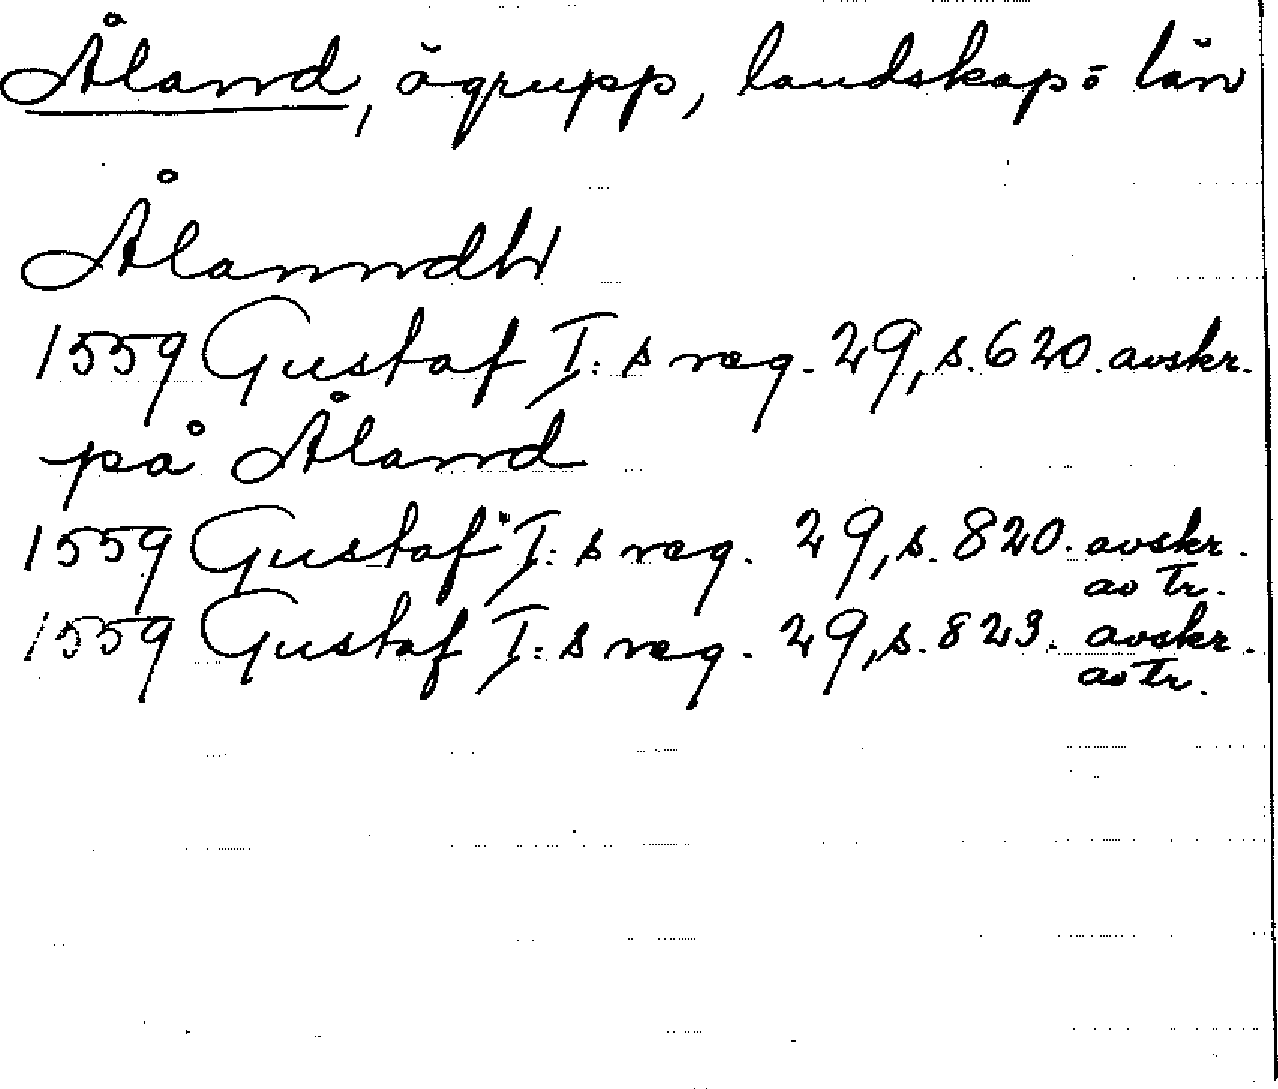 Åland, ögrupp, landskap = län
Ålanndh
1559 Gustaf I: s reg. 29, s. 620. avskr.
på Åland
1559 Gustaf I: s reg. 29, s. 820. avskr.
av tr.
1559 Gustaf I: s reg. 29, s. 823. avskr.
av tr.